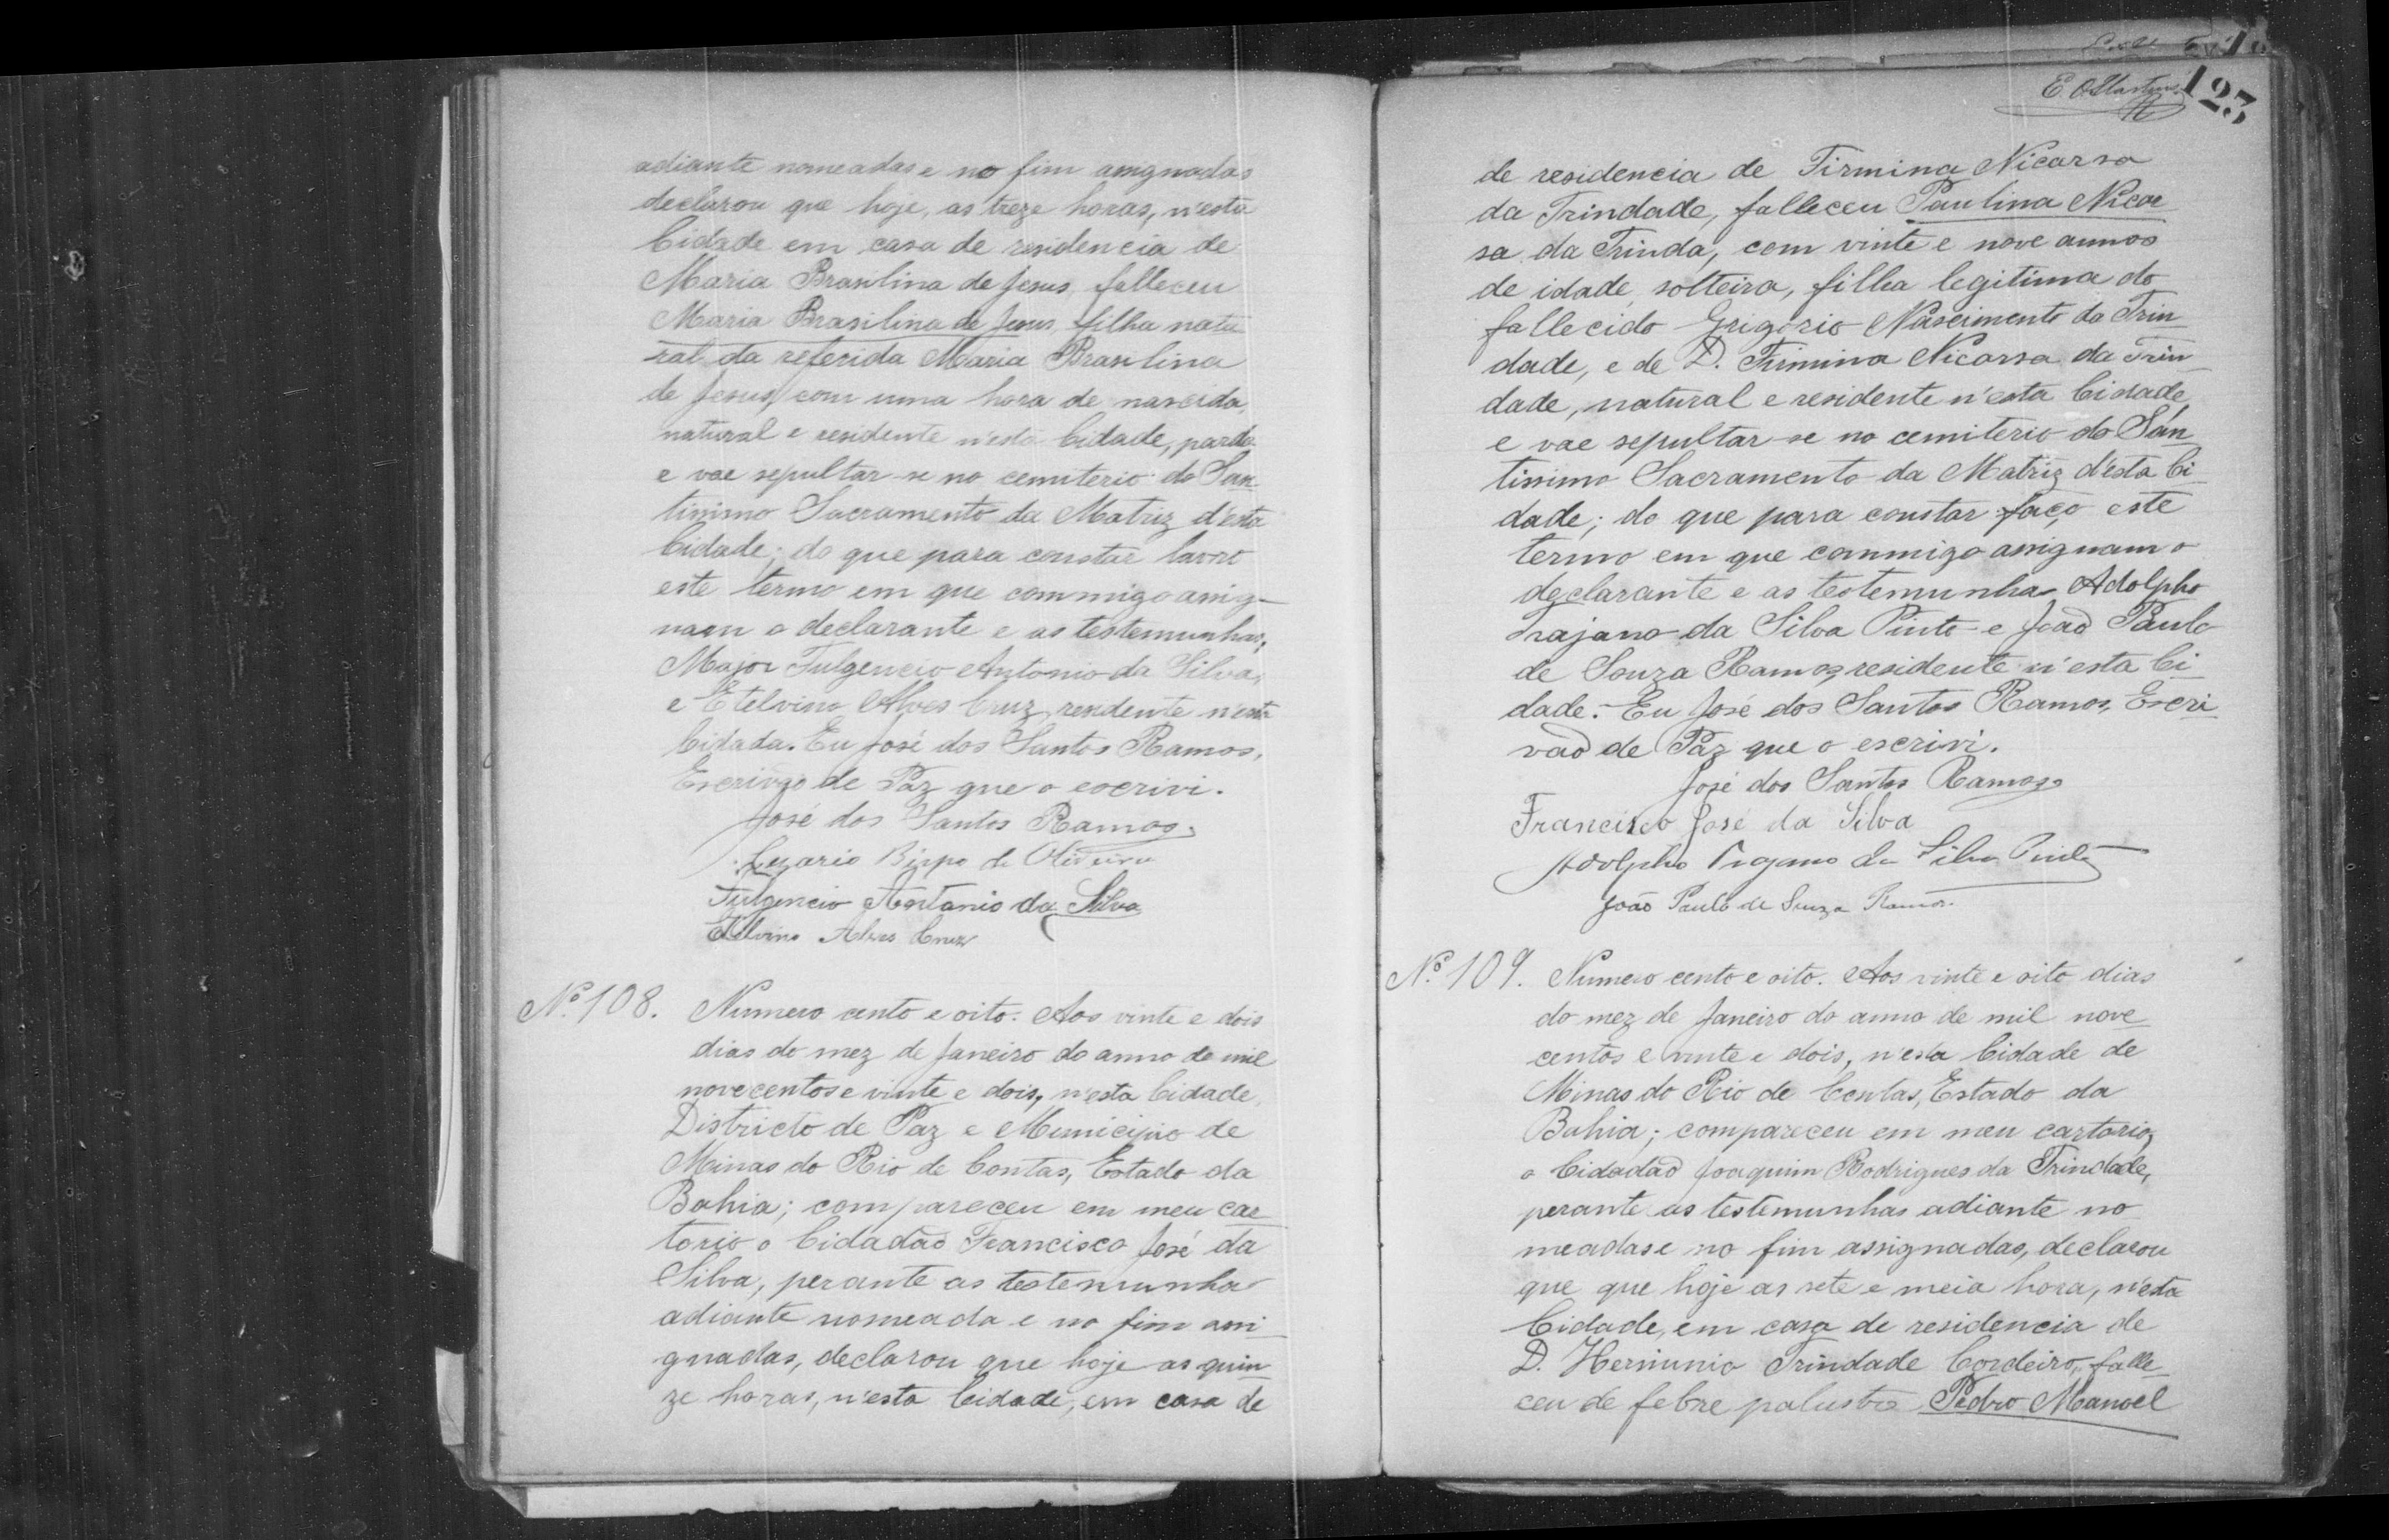 adiante nomeadas e no fim assignadas
declarou que hoje, as treze horas, n'esta
Cidade em casa de residencia de
Maria Brasilina de Jesus, falleceu
Maria Brasilina de Jesus, filha natu
ral da referida Maria Brasilina
de Jesus, com uma hora de nascida,
natural e residente n'esta Cidade, parda
e vae sepultar-se no cemiterio do San
tissimo Sacramento da Matriz d'esta
Cidade; do que para constar lavro
este termo em que commigo assig-
nam o declarante e as testemunhas,
Major Fulgencio Antonio da Silva,
e Etelvino Alves Cruz, residente n'esta
Cidada. Eu José dos Santos Ramos,
Escrivão de Paz que o escrivi.
José dos Santos Ramos.
Cezario Bispo de Oliveira
Fulgencio Antonio da Silva
Etelvino Alves Cruz
Nº 108. Numero cento e oito. Aos vinte e dois
dias do mez de Janeiro do anno de mil
novecentos e vinte e dois, n'esta Cidade,
Districto de Paz e Municipio de
Minas do Rio de Contas, Estado da
Bahia; compareceu em meu car
torio o Cidadão Francisco José da
Silva, perante as testemunha
adiante nomeada e no fim assi
gnadas, declarou que hoje as quin
ze horas, n'esta Cidade, em casa de
123
de residencia de Firmina Nicarsa
da Trindade, falleceu Paulina Nicar
sa da Trinda, com vinte e nove annos
de idade, solteira, filha legitima do
fallecido Grigorio Nascimento da Trin
dade, e de D. Firmina Nicarsa da Trin
dade, natural e residente n'esta Cidade
e vae sepultar-se no cemiterio do San
tissimo Sacramento da Matriz d'esta Ci
dade; do que para constar faço este
termo em que commigo assignam o
declarante e as testemunhas Adolpho
Trajano da Silva Pinto e João Paulo
de Souza Ramos, residente n'esta Ci
dade. Eu José dos Santos Ramos, Escri
vão de Paz que o escrivi.
José dos Santos Ramos.
Francisco José da Silva
Adolpho Trajano da Silva Pinto
João Paulo de Souza Ramos.
Nº 109. Numero cento e oito. Aos vinte e oito dias
do mez de Janeiro do anno de mil nove
centos e vinte e dois, n'esta Cidade de
Minas do Rio de Contas, Estado da
Bahia; compareceu em meu cartorio,
o Cidadão Joaquim Rodrigues da Trindade,
perante as testemunhas adiante no
meadas e no fim assignadas, declarou
que que hoje as sete e meia hora, n'esta
Cidade, em casa de residencia de
D. Hersiunia Trindade Cordeiro, falle
ceu de febre palustre Pedro Manoel